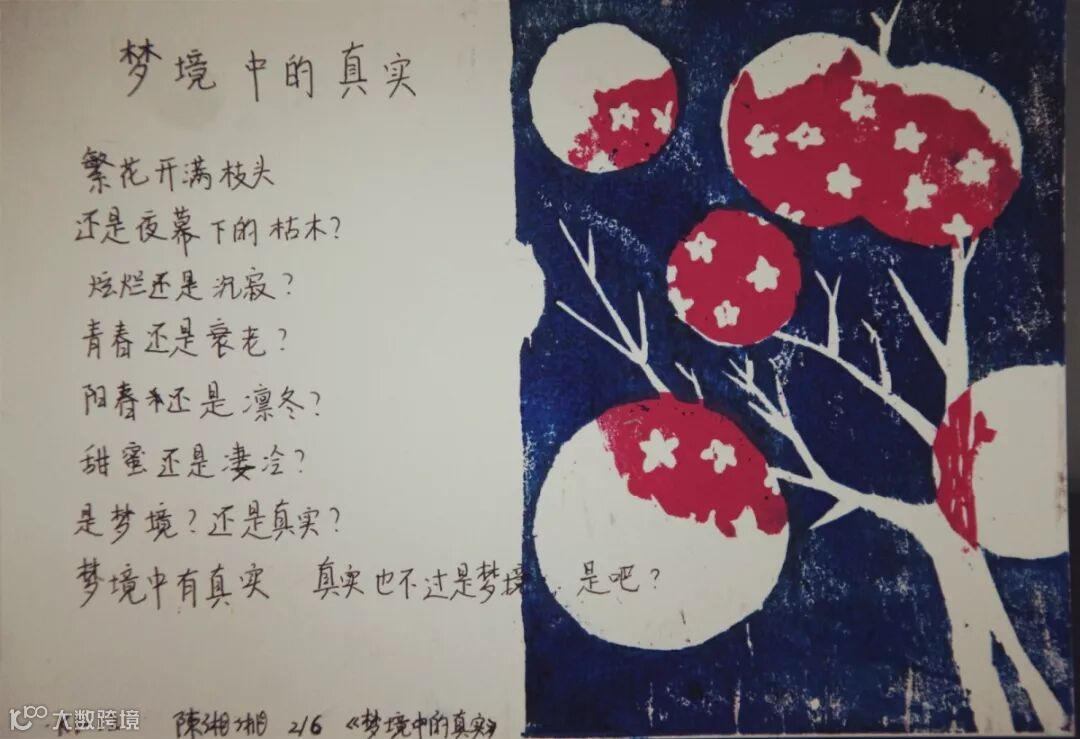 梦境中的真实
繁花开满枝头
还是夜幕下的枯木？
炫烂还是沉寂？
青春还是衰老？
阳春还是凛冬？
甜蜜还是凄冷？
是梦境？还是真实？
梦境中有真实 真实也不过是梦境 是吧？
陳湘湘 2/6 《梦境中的真实》
大数跨境